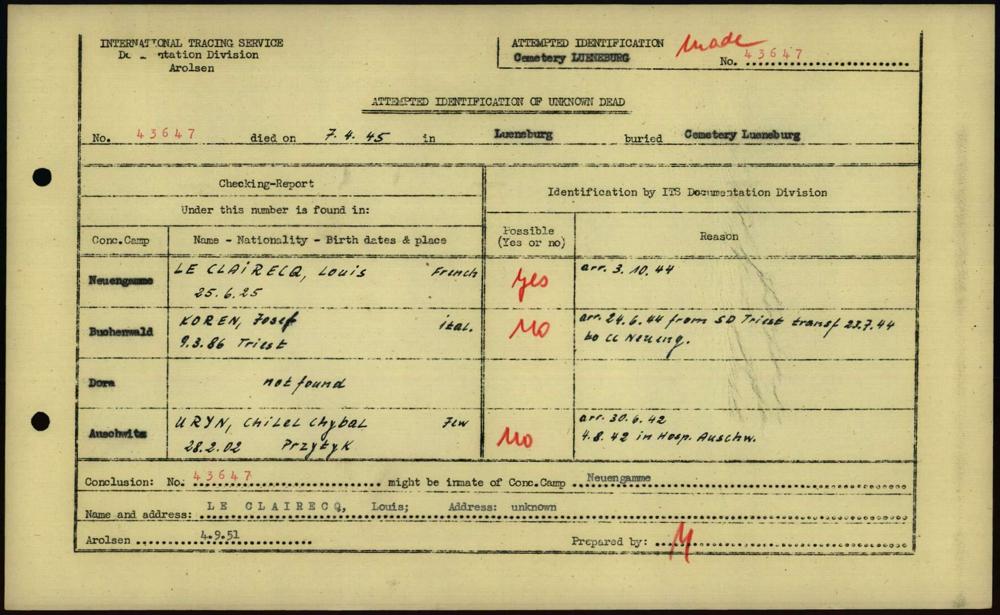 INTERNATIONAL TRACING SERVICE
Documentation Division
Arolsen
ATTEMPTED IDENTIFICATION made
Cemetery LUENEBURG No. 43647
ATTEMPTED IDENTIFICATION OF UNKNOWN DEAD
No. 43647 died on 7.4.45 in Lueneburg buried Cemetery Lueneburg
Checking-Report
Identification by ITS Documentation Division
Under this number is found in:
Possible
(Yes or no) Reason
Conc.Camp Name - Nationality - Birth dates & place
Neuengamme LE CLAIRECQ, Louis French yes arr. 3.10.44
25.6.25
Buchenwald KOREN, Josef ital. No arr. 24.6.44 from SD Triest transf 23.7.44
9.3.86 Triest to CC Neueng.
Dora not found
Auschwitz URYN, Chilel Chybal Jew No arr. 30.6.42
28.2.02 Przytyk 4.8.42 in Hosp. Auschw.
Conclusion: No. 43647 might be inmate of Conc.Camp Neuengamme
Name and address: LE CLAIRECQ, Louis; Address: unknown
Arolsen 4.9.51 Prepared by: M